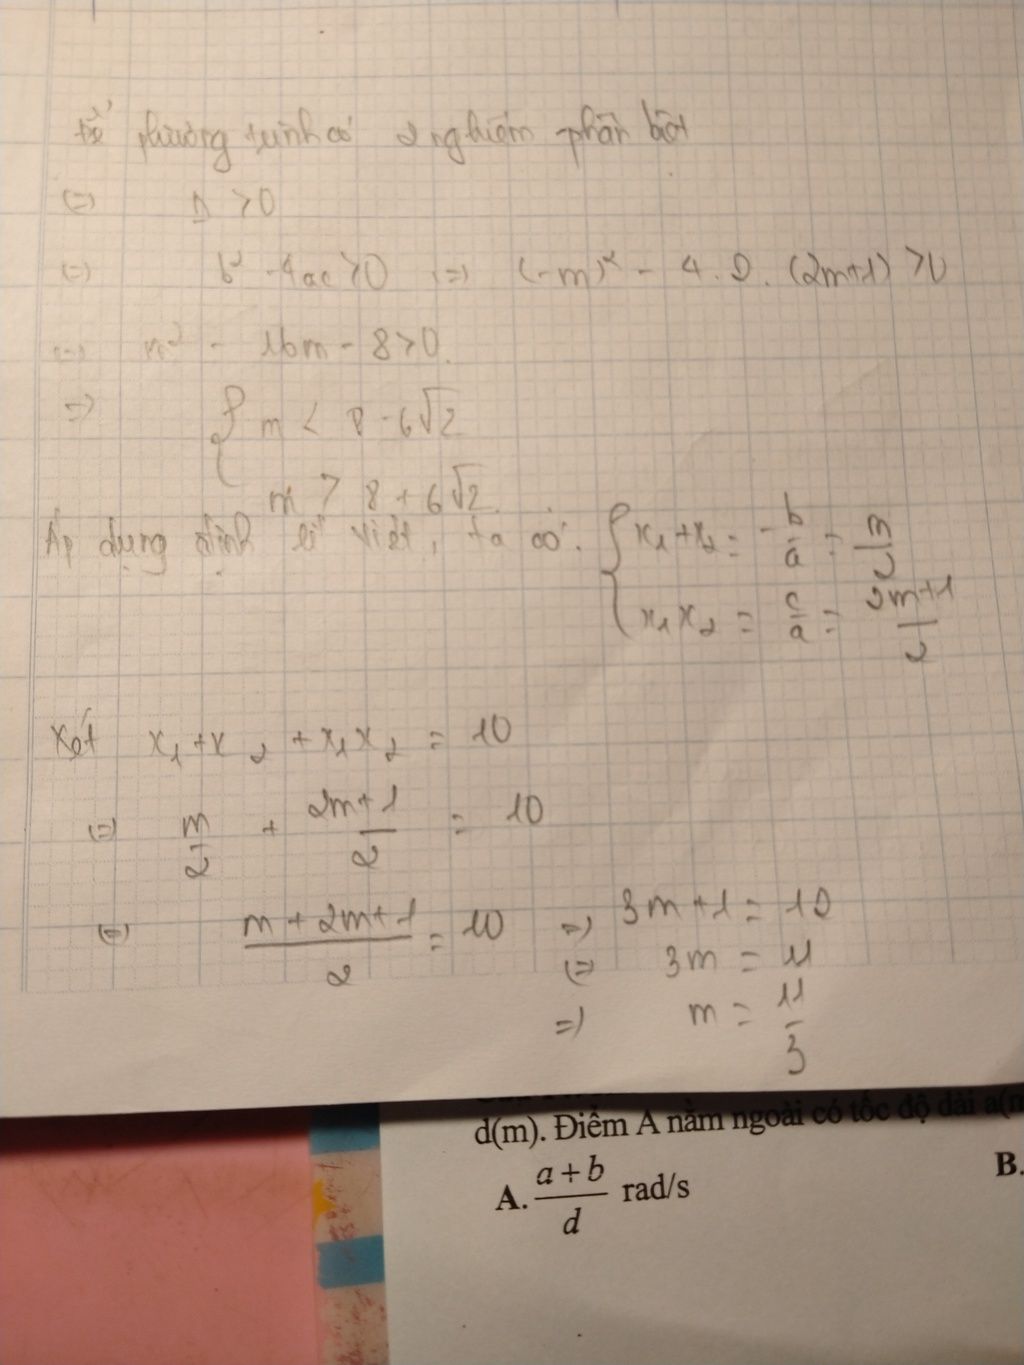 Để phương trình có 2 nghiệm phân biệt
(=) Δ > 0
(=) b² - 4ac > 0 (=) (-m)² - 4.2.(2m+1) > 0
(=) m² - 16m - 8 > 0.
=) { m < 8 - 6√2
m > 8 + 6√2.
Áp dụng định lí Viét, ta có: { x₁ + x₂ = -b/a = m/2
x₁x₂ = c/a = 2m+1/2
Xét x₁ + x₂ + x₁x₂ = 10
(=) m/2 + 2m+1/2 = 10
(=) m + 2m + 1/2 = 10 =) 3m + 1 = 10
(=) 3m = 11
=) m = 11/3
d(m). Điểm A nằm ngoài có tốc độ dài a(m
A. a + b/d rad/s B.